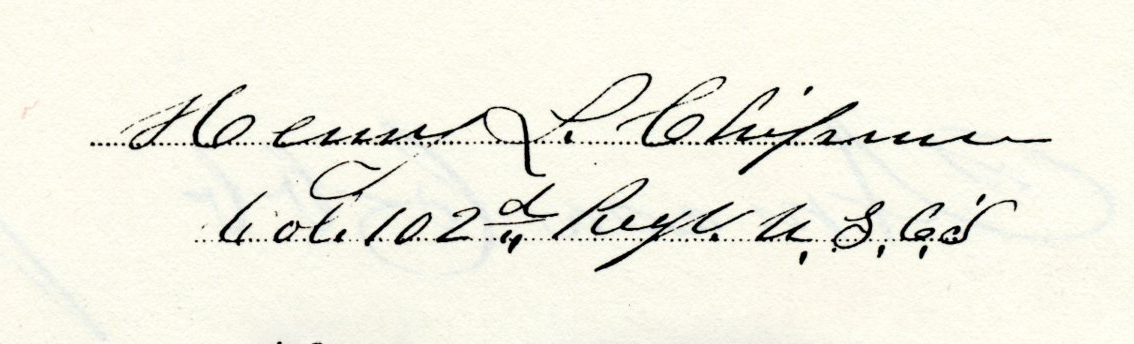 Henry L. Chipman
Col. 102d Regt. U. S. C.